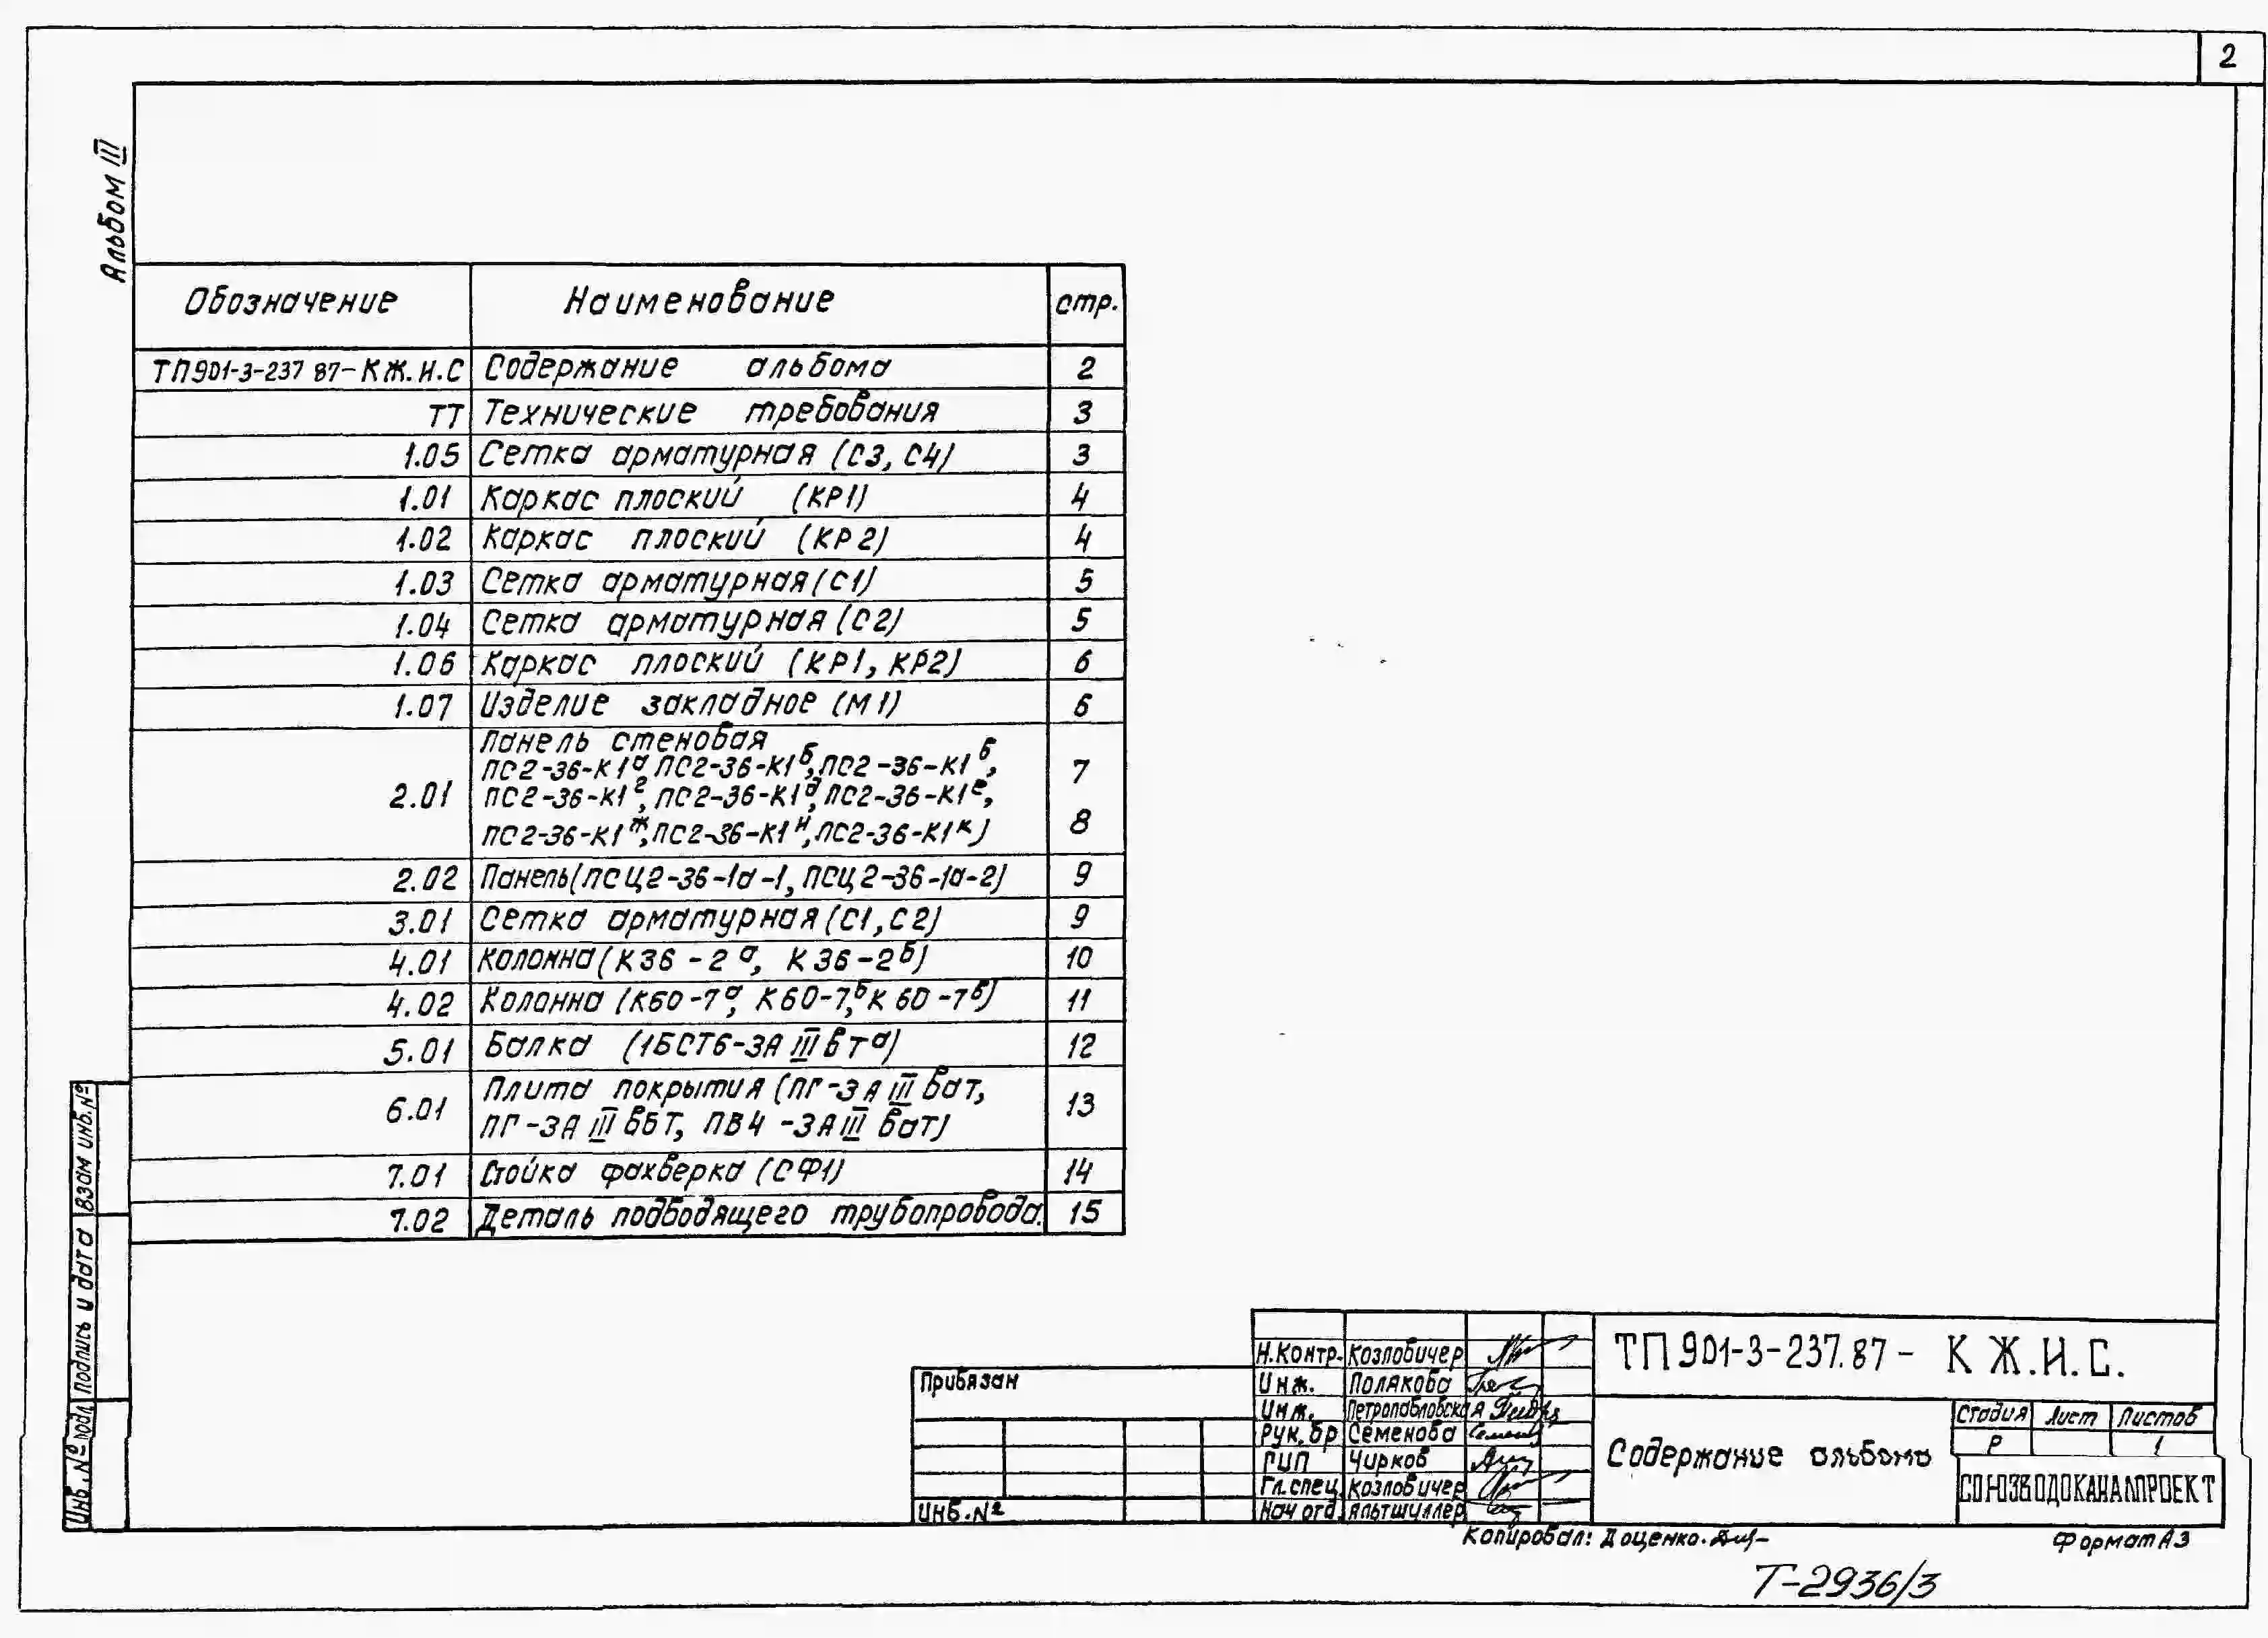 2
Альбом III
Обозначение Наименование стр.
ТП901-3-237 87-КЖ.И.С Содержание альбома 2
ТТ Технические требования 3
1.05 Сетка арматурная (С3, С4) 3
1.01 Каркас плоский (КР1) 4
1.02 Каркас плоский (КР2) 4
1.03 Сетка арматурная (С1) 5
1.04 Сетка арматурная (С2) 5
1.06 Каркас плоский (КР1, КР2) 6
1.07 Изделие закладное (М1) 6
2.01 Панель стеновая
ПС2-36-К1а, ПС2-36-К1б, ПС2-36-К1в, 7
ПС2-36-К1г, ПС2-36-К1д, ПС2-36-К1е,
ПС2-36-К1ж, ПС2-36-К1и, ПС2-36-К1к) 8
2.02 Панель(ПСЦ2-36-1а-1, ПСЦ2-36-1а-2) 9
3.01 Сетка арматурная (С1, С2) 9
4.01 Колонна (К36-2а, К36-2б) 10
4.02 Колонна (К60-7а, К60-7б, К60-7в) 11
5.01 Балка (1БСТ6-3АIIIвТа) 12
6.01 Плита покрытия (ПГ-3АIIIваТ, 13
ПГ-3АIIIвбТ, ПВ4-3АIIIваТ)
7.01 Стойка фахверка (СФ1) 14
7.02 Деталь подводящего трубопровода. 15
Инв.№ подл. Подпись и дата Взам инв.№
Привязан
Инв.№
Н.Контр. Козловичер
Инж. Полякова
Инж. Петропавловская
Рук.бр Семенова
ГИП Чирков
Гл.спец. Козловичер
Нач отд. Альтшуллер
ТП901-3-237.87- КЖ.И.С.
Содержание альбома
Стадия Лист Листов
Р 1
СОЮЗВОДОКАНАЛПРОЕКТ
Копировал: Доценко. Формат А3
Т-2936/3